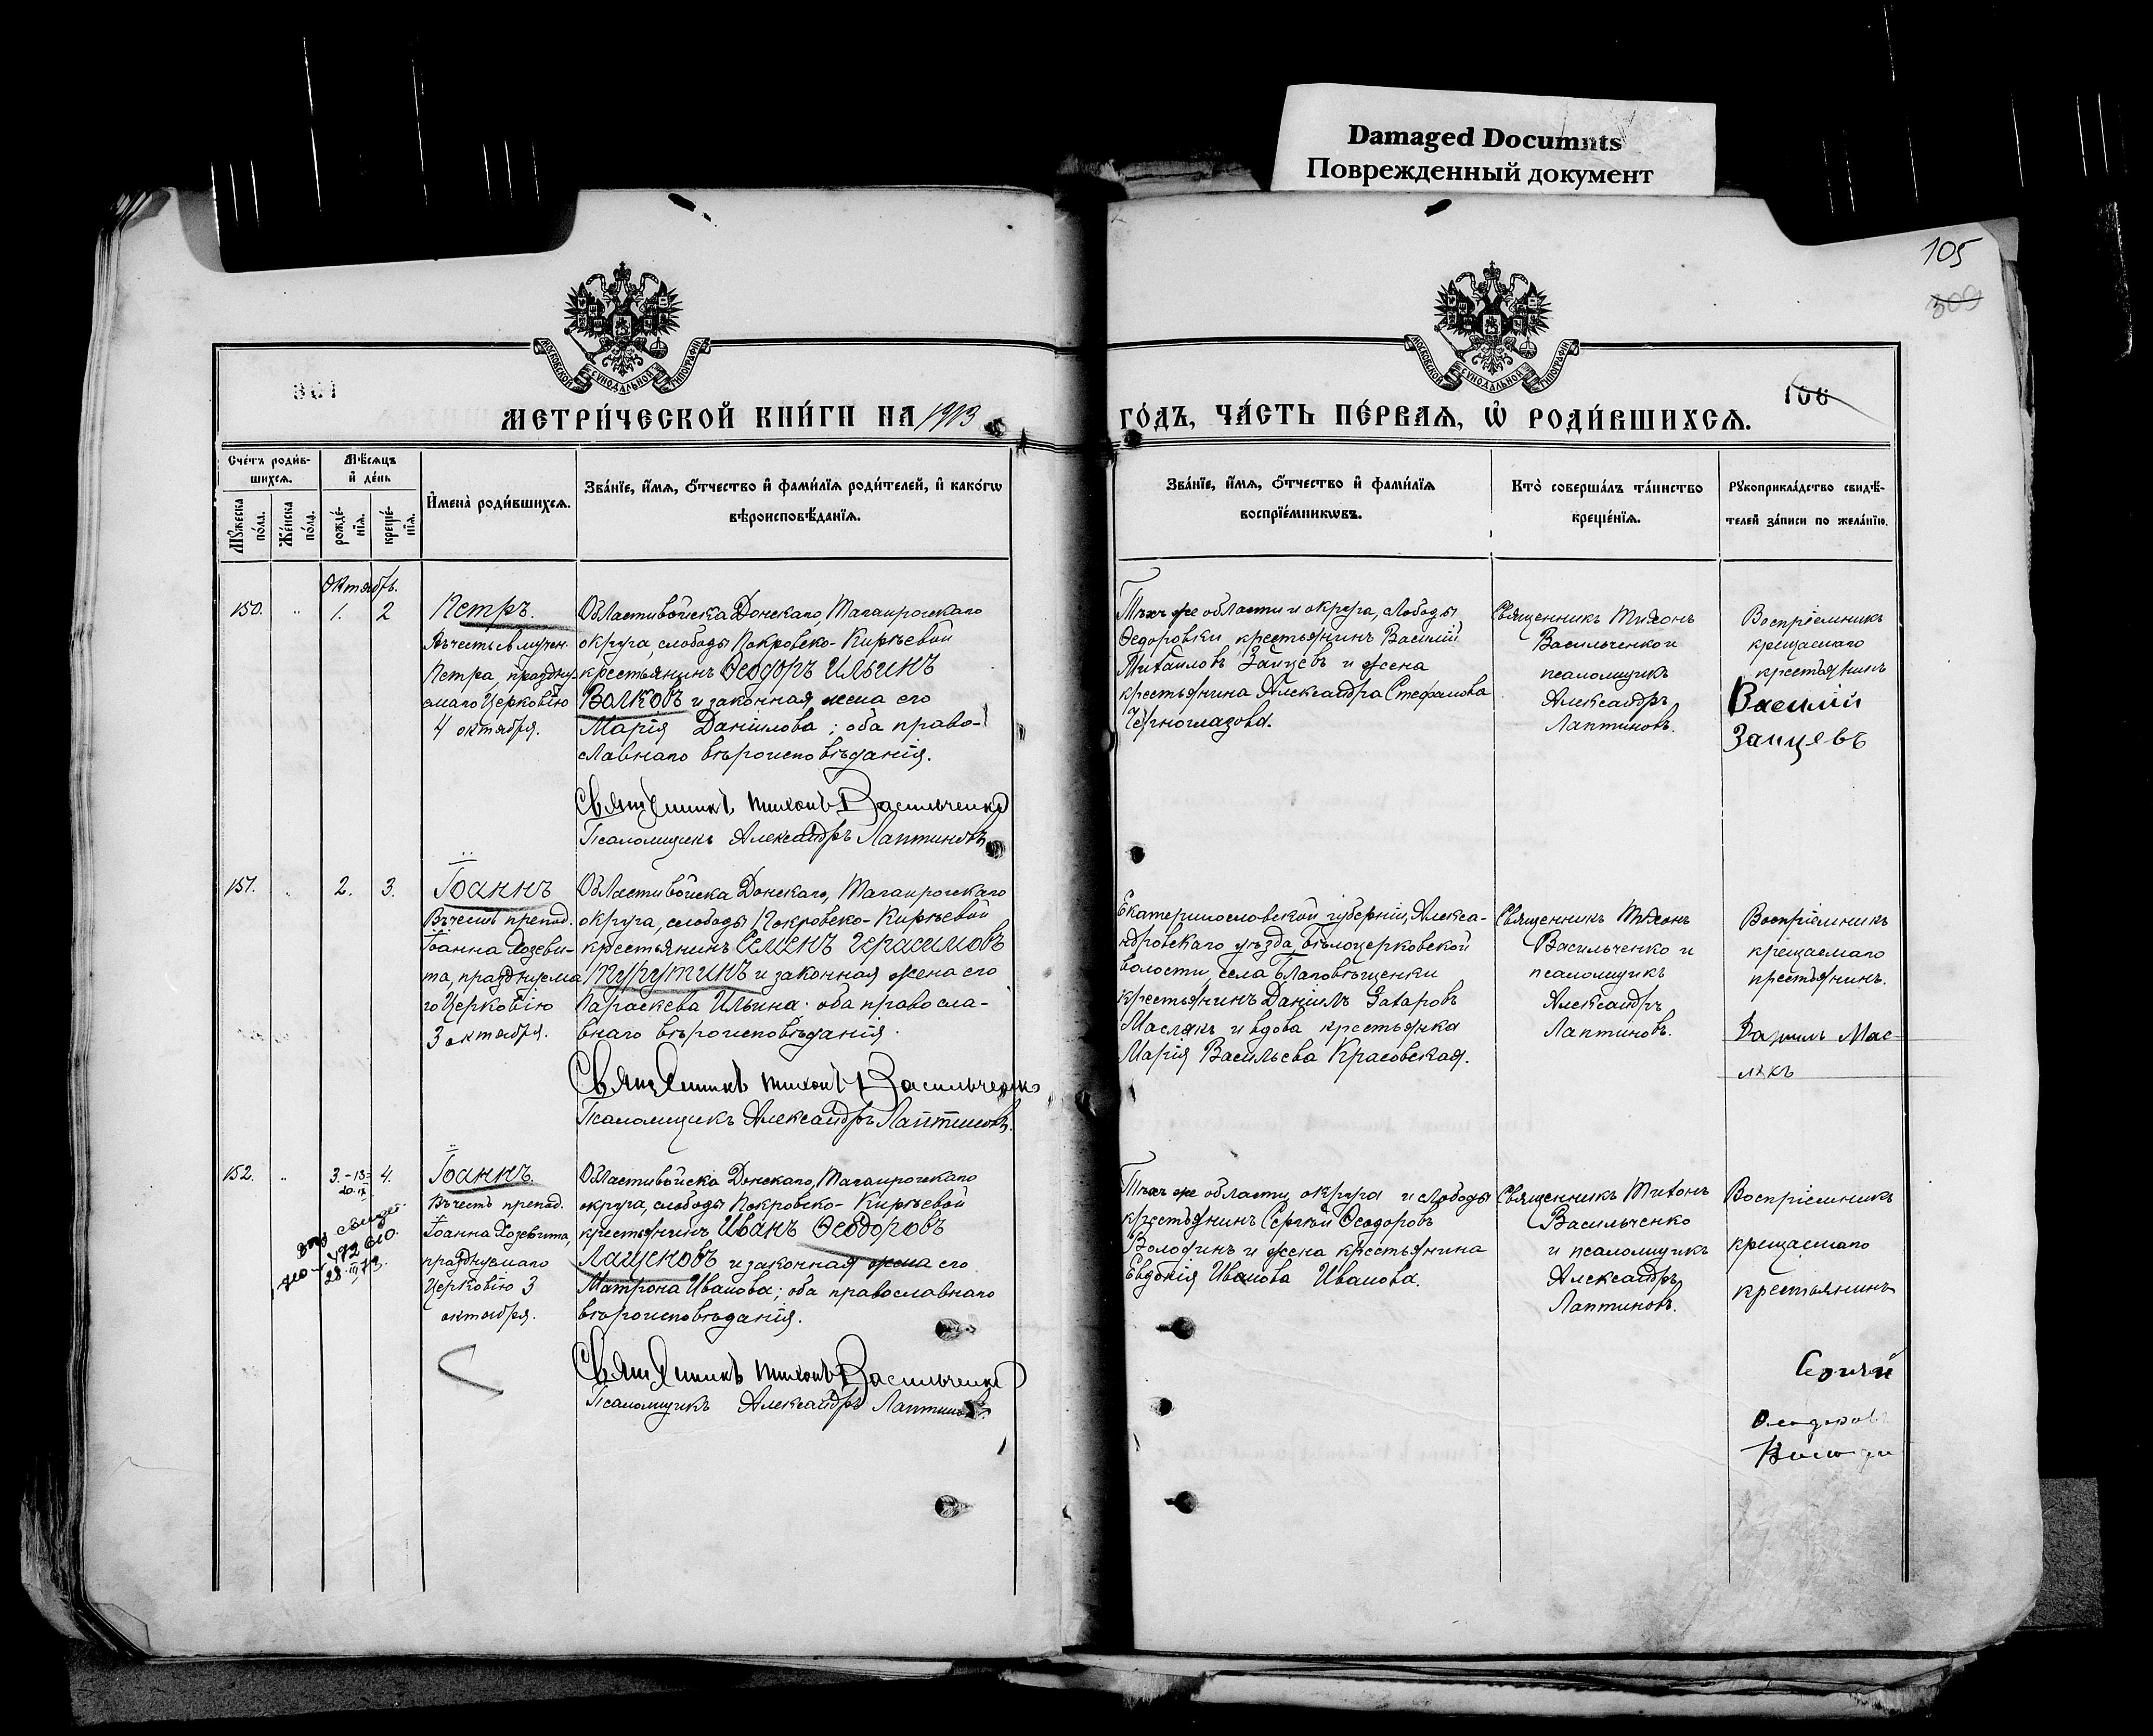 Damaged Documnts
Поврежденный документ
105
309
МОСКОВСКОЙ СѴНОДАЛЬНОЙ ТИПОГРАФІИ
МОСКОВСКОЙ СѴНОДАЛЬНОЙ ТИПОГРАФІИ
МЕТРИ́ЧЕСКОЙ КНИ́ГИ НА 1913
ГО́ДЪ, ЧА́СТЬ ПЕ́РВАѦ, Ѡ҆ РОДИ́ВШИХСѦ.
Сче́тъ роди́в-
шихсѧ.
Мꙋ́жеска по́ла.
Же́нска по́ла.
Мѣ́сѧцъ
и҆ де́нь
рожде́-
нїѧ.
креще́-
нїѧ.
И҆мена̀ роди́вшихсѧ.
Зва́нїе, и҆́мѧ, ѻ҆́тчество и҆ фами́лїѧ роди́телей, и҆ како́гѡ
вѣроисповѣ́данїѧ.
Зва́нїе, и҆́мѧ, ѻ҆́тчество и҆ фами́лїѧ
воспрїе́мникѡвъ.
Кто̀ соверша́лъ та́инство
креще́нїѧ.
Рꙋкоприкла́дство свидѣ́-
телей за́писи по жела́нїю.
Октябрь.
150.
1.
2
Петръ.
Въ честь св. мучен.
Петра, праздну-
емаго Церковію
4 октября.
Области войска Донскаго, Таганрогскаго
округа, слободы Покровско-Кирѣевой
крестьянинъ Ѳеодоръ Ильинъ
Волковъ и законная жена его
Марія Даніилова; оба право-
славнаго вѣроисповѣданія.
Священникъ Тихонъ Васильченко
Псаломщикъ Александръ Лаптиновъ
Тѣхъ же области и округа, слободы
Ѳедоровки крестьянинъ Василій
Михайловъ Зайцевъ и жена
крестьянина Александра Стефанова
Черноглазова.
Священникъ Тихонъ
Васильченко и
псаломщикъ
Александръ
Лаптиновъ.
Воспріемникъ
крещаемаго
крестьянинъ
Василій
Зайцевъ
151.
2.
3.
Іоаннъ
Въ честь препод.
Іоанна Хозеви-
та, празднуема
го Церковію
3 октября.
Области войска Донскаго, Таганрогскаго
округа, слободы Покровско-Кирѣевой
крестьянинъ Семенъ Герасимовъ
и законная жена его
Параскева Ильина; оба правосла-
внаго вѣроисповѣданія.
Священникъ Тихонъ Васильченко
Псаломщикъ Александръ Лаптиновъ.
Екатеринославской губерніи, Алекса-
ндровскаго уѣзда, Бѣлоцерковской
волости, села Благовѣщенки
крестьянинъ Даніилъ Захаровъ
Маслякъ и вдова крестьянка
Марія Васильева Красовская.
Священникъ Тихонъ
Васильченко и
псаломщикъ
Александръ
Лаптиновъ.
Воспріемникъ
крещаемаго
крестьянинъ.
Даніилъ Мас-
лякъ
152.
3.
4.
Іоаннъ.
Въ честь препод.
Іоанна Хозевита,
празднуемаго
Церковію 3
октября.
Области войска Донскаго, Таганрогскаго
округа, слободы Покровско-Кирѣевой
крестьянинъ Иванъ Ѳеодоровъ
Лащеновъ и законная жена его
Матрона Иванова; оба православнаго
вѣроисповѣданія.
Священникъ Тихонъ Васильченко
Псаломщикъ Александръ Лаптиновъ.
Тѣхъ же области, округа и слободы
крестьянинъ Сергій Ѳеодоровъ
Володинъ и жена крестьянина
Евдокія Иванова Иванова.
Священникъ Тихонъ
Васильченко
и псаломщикъ
Александръ
Лаптиновъ.
Воспріемникъ
крещаемаго
крестьянинъ